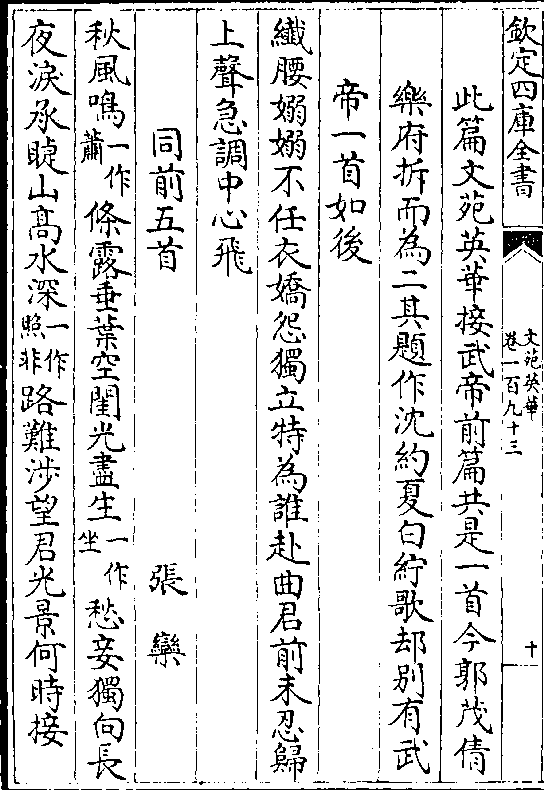 欽定四庫全書
文苑英華
卷一百九十三
十
此篇文苑英華接武帝前篇共是一首今郭茂倩
樂府拆而為二其題作沈約夏白紵歌却別有武
帝一首如後
纖腰嫋嫋不任衣嬌怨獨立特為誰赴曲君前未忍歸
上聲急調中心飛
同前五首 張率
秋風鳴一作蕭條露垂葉空閨光盡生一作坐愁妾獨向長
夜淚承睫山髙水深一作照非路難涉望君光景何時接